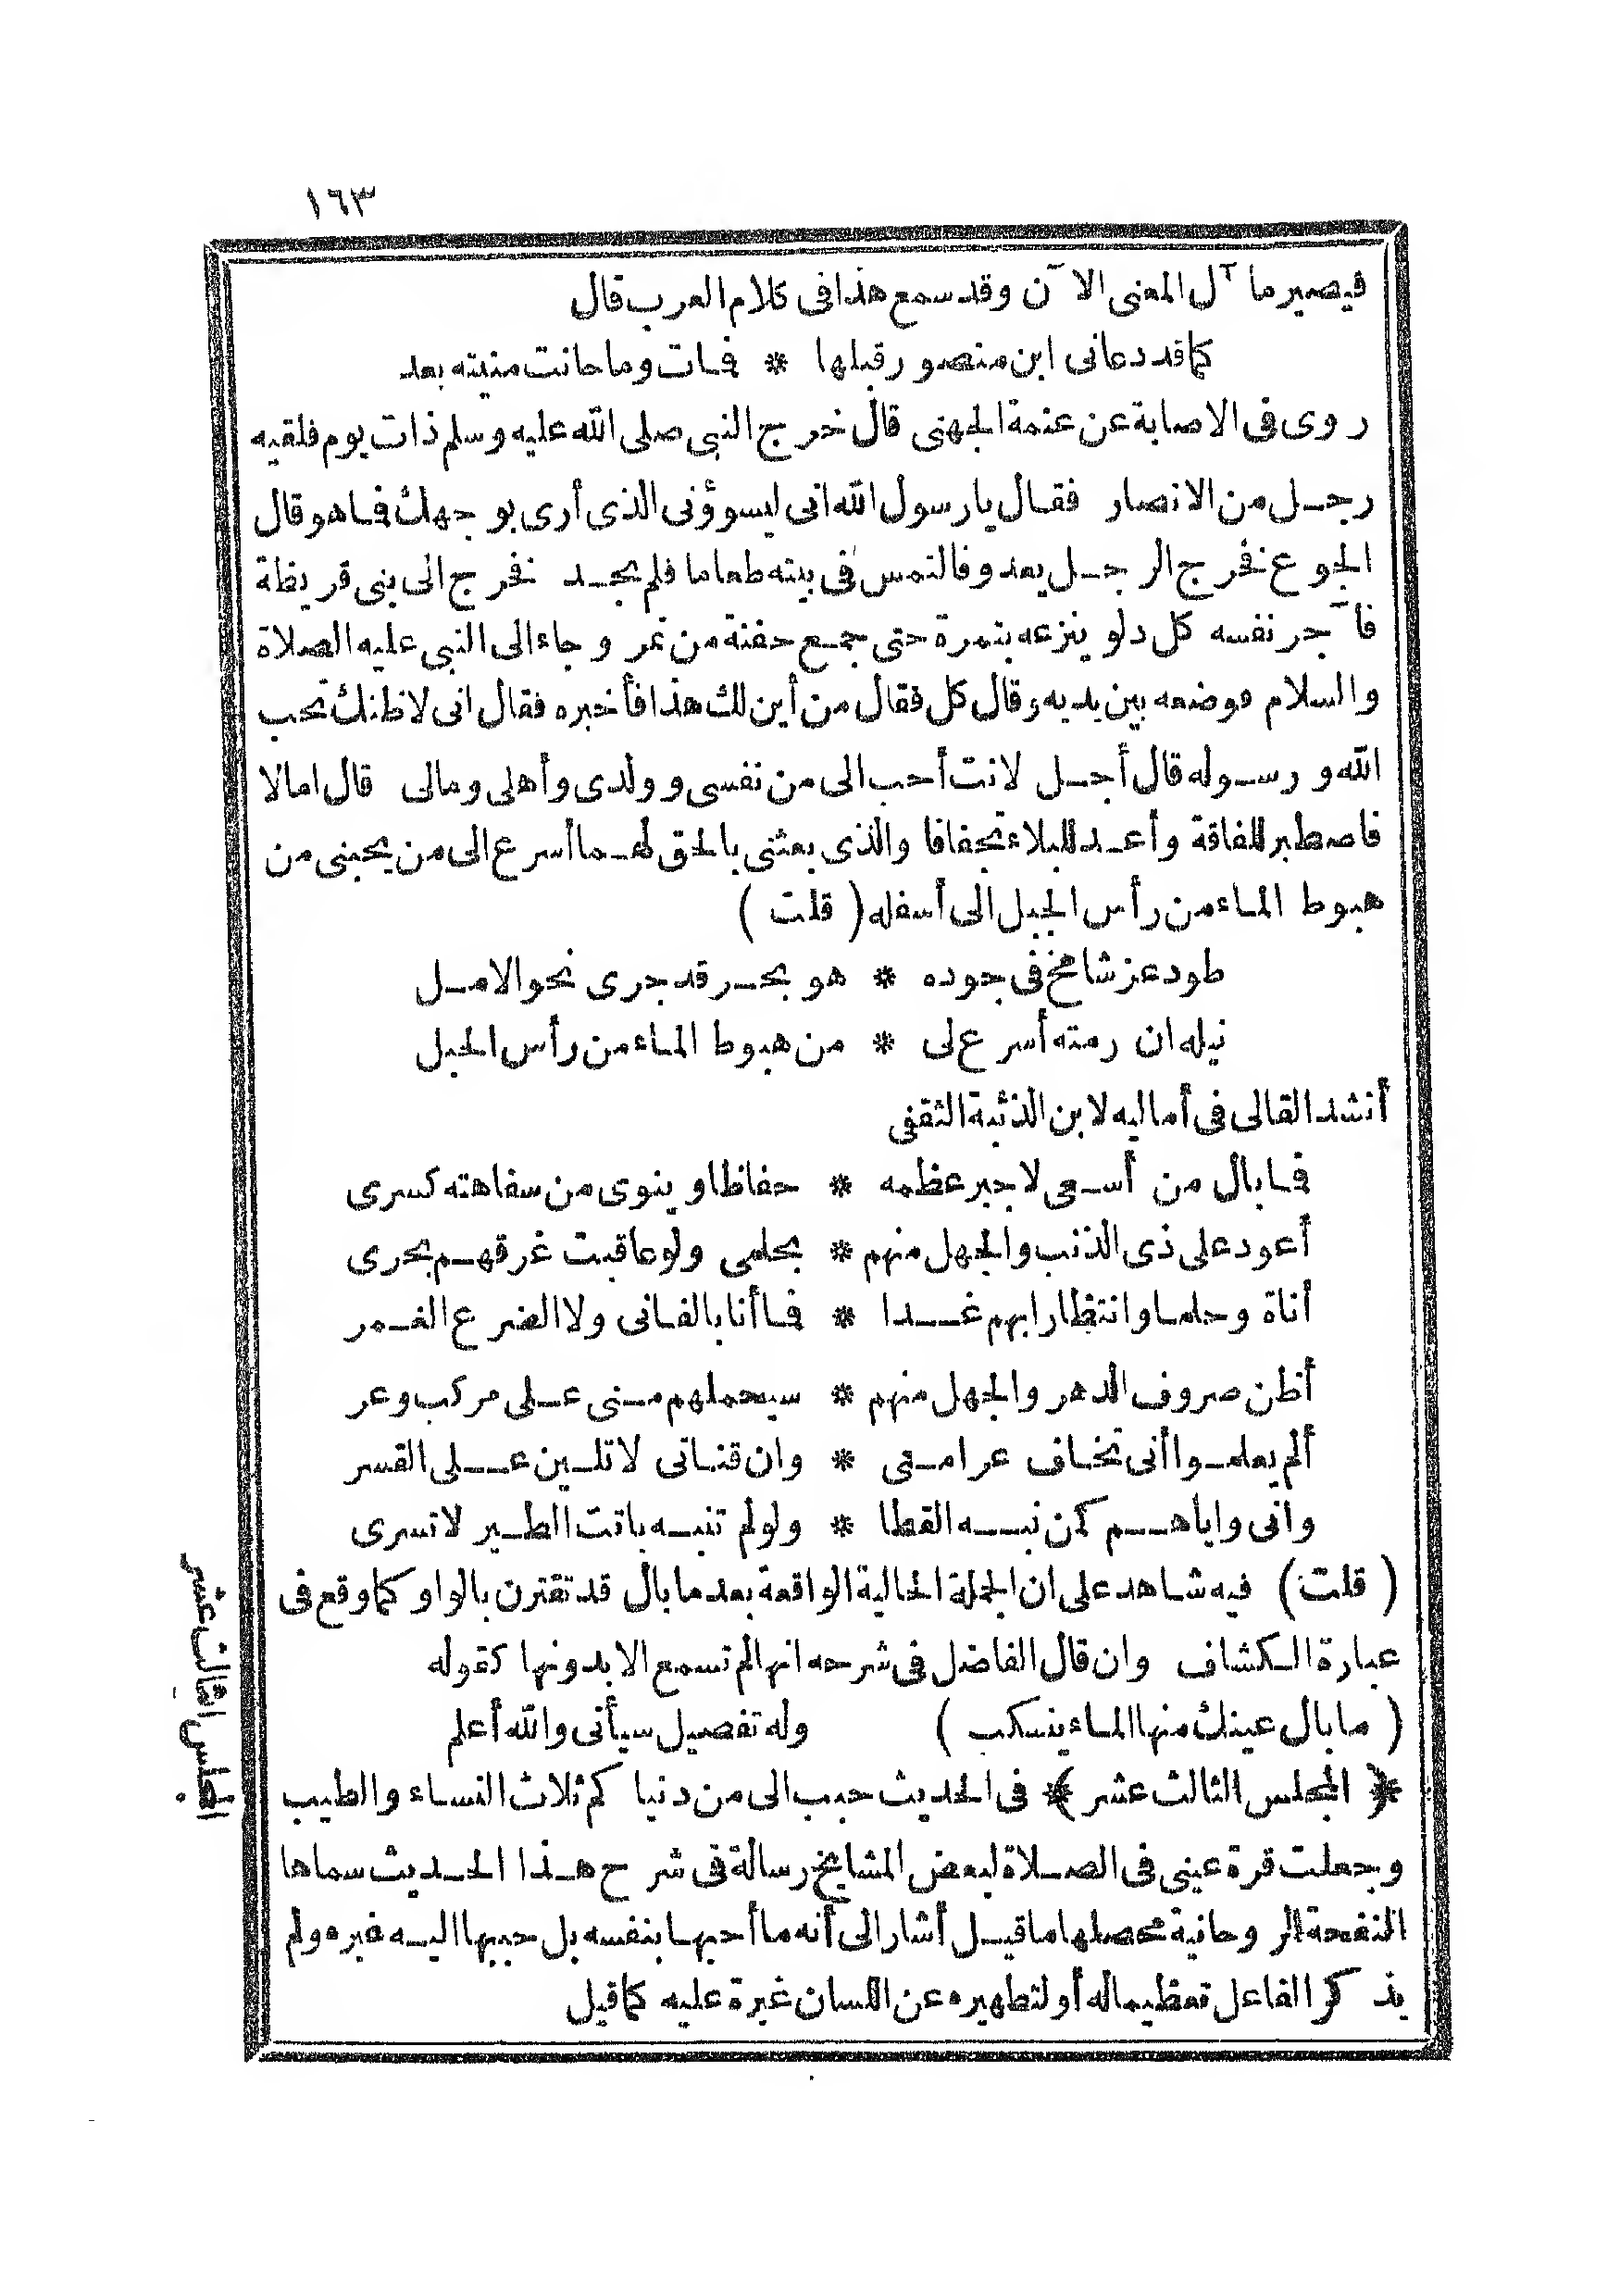 ١٦٣
فيصير مآل المعنى الآن وقد سمع هذا فى كلام العرب قال
كما قد دعانى ابن منصور قبلها * فمات وما حانت منيته بعد
روى فى الاصابة عن عنمة الجهنى قال خرج النبى صلى الله عليه وسلم ذات يوم فلقيه
رجل من الانصار فقال يا رسول الله انى ليسوؤنى الذى أرى بوجهك فما هو قال
الجوع فخرج الرجل يعدو فالتمس فى بيته طعاما فلم يجد فخرج الى بنى قريظة
فآجر نفسه كل دلو ينزعه بتمرة حتى جمع حفنة من تمر وجاء الى النبى عليه الصلاة
والسلام فوضعه بين يديه وقال كل فقال من أين لك هذا فأخبره فقال انى لاظنك تحب
الله ورسوله قال أجل لانت أحب الى من نفسى وولدى وأهلى ومالى قال امالا
فاصطبر للفاقة وأعد للبلاء تجفافا والذى بعثنى بالحق لهما أسرع الى من يحبنى من
هبوط الماء من رأس الجبل الى أسفله (قلت)
طود عز شامخ فى جوده * هو بحر قد جرى نحو الامل
نيله ان رمته أسرع لى * من هبوط الماء من رأس الجبل
أنشد القالى فى أماليه لابن الذئبة الثقفى
فما بال من أسعى لاجبر عظمه * حفاظا وينوى من سفاهته كسرى
أعود على ذى الذنب والجهل منهم * بحلمى ولو عاقبت غرقهم بحرى
أناة وحلما وانتظارا بهم غدا * فما أنا بالفانى ولا الضرع الغمر
أظن صروف الدهر والجهل منهم * سيحملهم منى على مركب وعر
ألم يعلموا أنى تخاف عرامتى * وان قناتى لا تلين على القسر
وانى واياهم كمن نبه القطا * ولو لم تنبه باتت الطير لا تسرى
(قلت) فيه شاهد على ان الجملة الحالية الواقعة بعد ما بال قد تقترن بالواو كما وقع فى
عبارة الكشاف وان قال الفاضل فى شرحه انها لم تسمع الا بدونها كقوله
(ما بال عينك منها الماء ينسكب) وله تفصيل سيأتى والله أعلم
﴿المجلس الثالث عشر﴾ فى الحديث حبب الى من دنياكم ثلاث النساء والطيب
وجعلت قرة عينى فى الصلاة لبعض المشايخ رسالة فى شرح هذا الحديث سماها
النفحة الروحانية محصلها ما قيل أشار الى أنه ما أحبها بنفسه بل حببها اليه غيره ولم
يذكر الفاعل تعظيما له أو لتطهيره عن اللسان غيرة عليه كما قيل
المجلس الثالث عشر